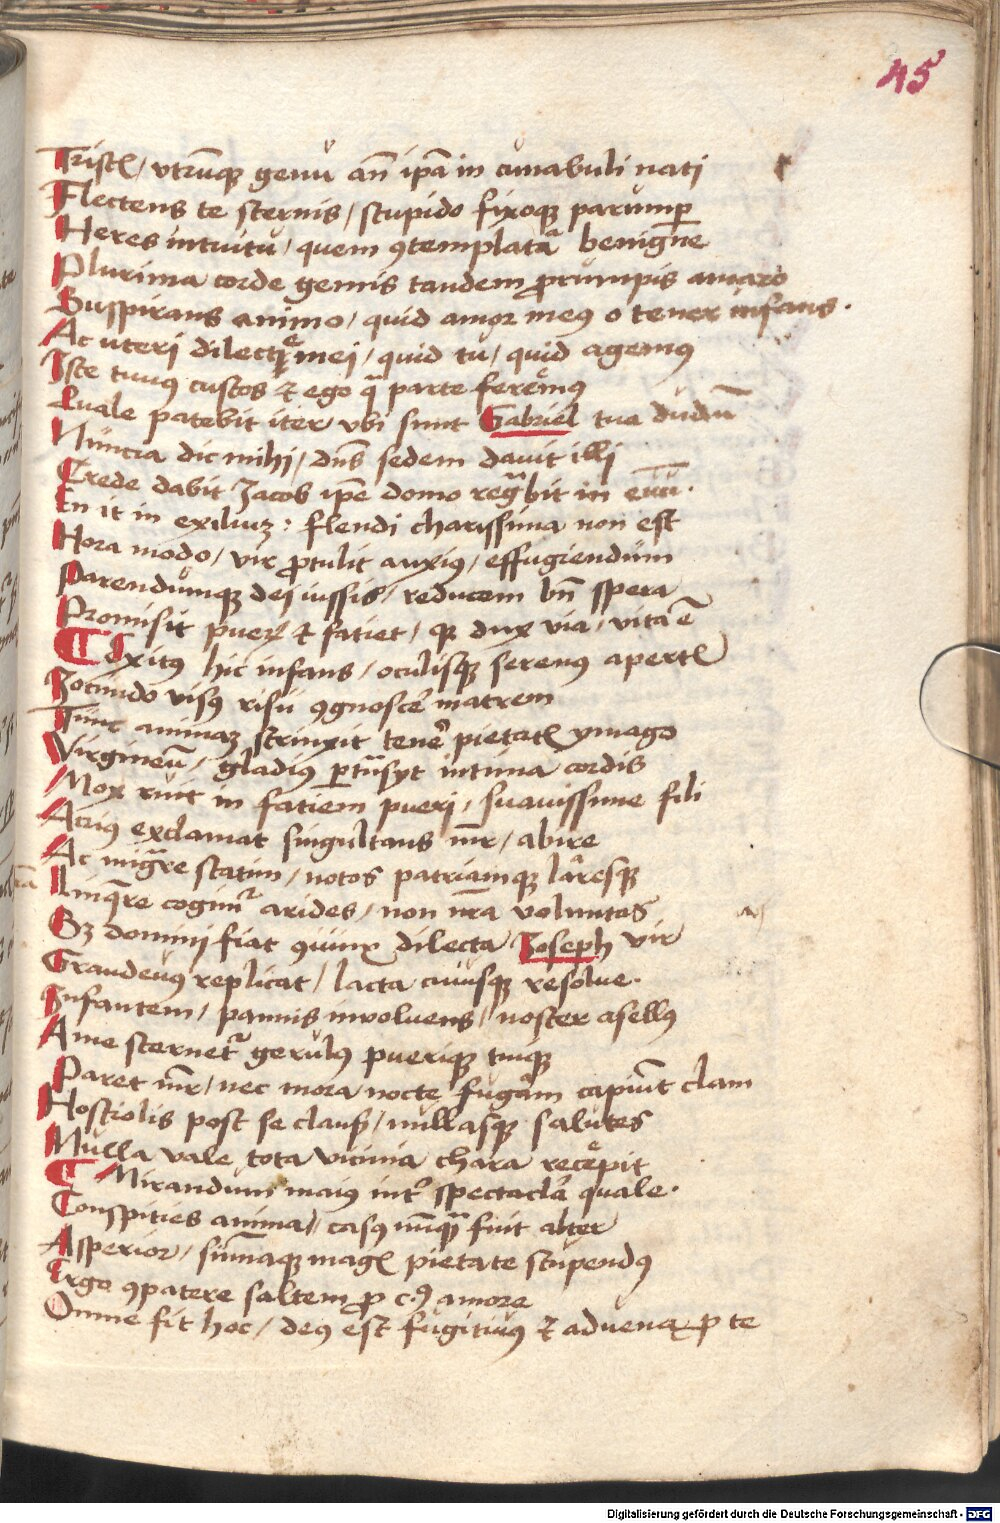 45
Tristꝭ / vtrūqꝫ genu an̄ ip̄a in cunabuli nati
Flectens te sternis / stupido fixoqꝫ parumꝑ
Heres intuitu / quem ꝯtemplata᷑ benigne
Plurima corde gemis tandem ꝓrumpis amaro
Suspirans animo / quid amor meꝰ o tener infans .
Ac uteri dilecte mei / quid tu / quid agemꝰ
Iste tuuꝰ custos & ego qᷓ parte feremꝰ
Quale patebit iter vbi sunt Gabriel tua dudū
Nuncia dic mihi / dn̄s sedem dauit illi
Crede dabit Jacob ip̄e domo regᷓbit in euū .
En it in exiliuꝫ : flendi charissima non est
Hora modo / vir ꝓtulit anxiꝰ / effugiendum
Parendumqꝫ dei iussis / reducem bn̄ spera
Promisit pueꝝ & fatiet / qꝛ dux via / vita ē
Excitꝰ hic infans / oculisqꝫ serenus apertꝭ
Jocundo visꝰ risu ꝯgnoscer̄ matrem
Tunc animaꝫ strinxit tener̄ pietatꝭ ymago
Virgineū / gladius ꝑtn̄syt intima cordis
Mox ruit in fatiem pueri / suauissime fili
Acriꝰ exclamat singultans mr̄ / abire
Ac migᷓre statim / notos patriamqꝫ laresqꝫ
Linqᷓre cogim᷑ arides / non nr̄a voluntas
Sꝫ domini fiat ꝯiunx dilecta Joseph vir
Grandeuꝰ replicat / lacta cunisqꝫ resolue .
Infantem / pannis inuoluens / noster asellꝰ
A me sternet᷑ gerulꝰ puerique tuiqꝫ
Paret mr̄ / nec mora nocte fugam capiūt clam
Hostiolis post se clausꝭ / nullasqꝫ salutes
Nulla vale tota vicinia chara recepit
Mirandum maiꝰ int᷑ spectacla quale .
Conspities anima / casꝰ nūqᷓ fuit alter
Asperior / sūmaqꝫ magꝭ pietate stupendꝰ
Ergo ꝯpatere saltem ꝓ c.ꝰ amore
Omne fit hoc / deꝰ est fugitiuꝰ & aduena ꝓ te
Digitalisierung gefördert durch die Deutsche Forschungsgemeinschaft - DFG